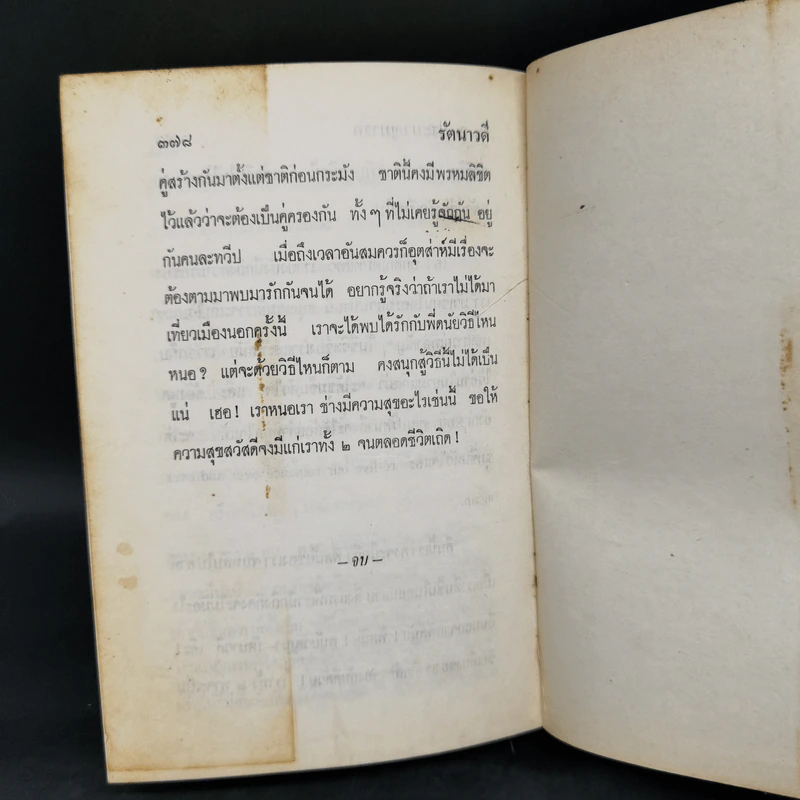 ๓๗๘ รัตนาวดี
คู่สร้างกันมาตั้งแต่ชาติก่อนกระมัง ชาตินี้คงมีพรหมลิขิต
ไว้แล้วว่าจะต้องเป็นคู่ครองกัน ทั้งๆ ที่ไม่เคยรู้จักกัน อยู่
กันคนละทวีป เมื่อถึงเวลาอันสมควรก็อุตส่าห์มีเรื่องจะ
ต้องตามมาพบมารักกันจนได้ อยากรู้จริงว่าถ้าเราไม่ได้มา
เที่ยวเมืองนอกครั้งนี้ เราจะได้พบได้รักกับพี่ดนัยวิธีไหน
หนอ? แต่จะด้วยวิธีไหนก็ตาม คงสนุกสู้วิธีนี้ไม่ได้เป็น
แน่ เฮอ! เราหนอเรา ช่างมีความสุขอะไรเช่นนี้ ขอให้
ความสุขสวัสดีจงมีแก่เราทั้ง ๒ จนตลอดชีวิตเถิด!
– จบ –